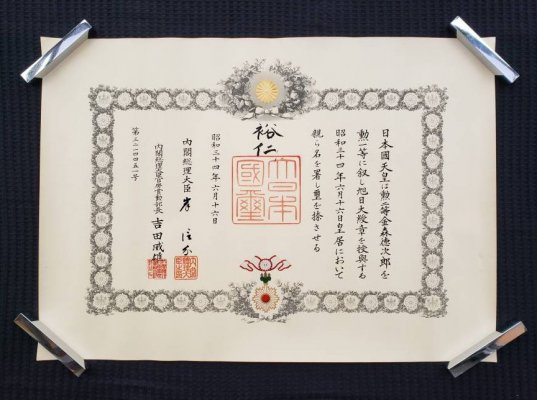 日本國天皇は勲二等金森德次郎を
勲一等に叙し旭日大綬章を授與する
昭和三十四年六月十六日皇居において
親ら名を署し璽を捺させる
裕仁
大日本國璽
昭和三十四年六月十六日
内閣総理大臣 岸 信介
内閣総理大臣官房賞勲部長 吉田威雄
第三一一四五一号